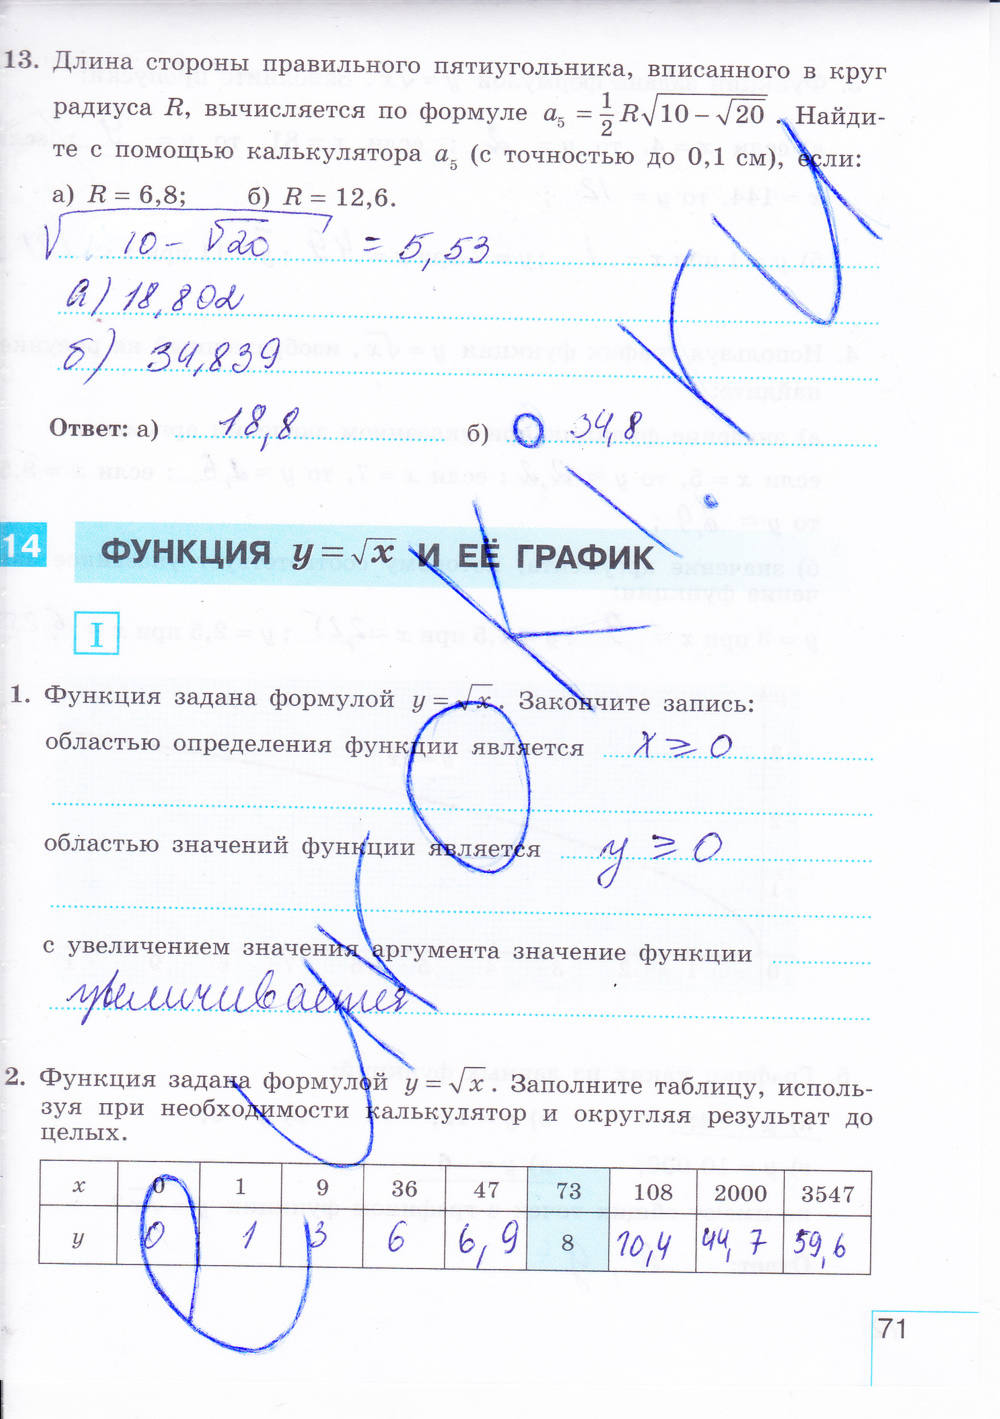 13. Длина стороны правильного пятиугольника, вписанного в круг
радиуса R, вычисляется по формуле a₅ = 1/2 R√(10 − √20). Найди-
те с помощью калькулятора a₅ (с точностью до 0,1 см), если:
а) R = 6,8; б) R = 12,6.
√(10 − √20) = 5,53
а) 18,802
б) 34,839
Ответ: а) 18,8 б) 34,8
14 ФУНКЦИЯ y = √x И ЕЁ ГРАФИК
I
1. Функция задана формулой y = √x. Закончите запись:
областью определения функции является x ≥ 0
областью значений функции является y ≥ 0
с увеличением значения аргумента значение функции
увеличивается
2. Функция задана формулой y = √x. Заполните таблицу, исполь-
зуя при необходимости калькулятор и округляя результат до
целых.
x 0 1 9 36 47 73 108 2000 3547
y 0 1 3 6 6,9 8 10,4 44,7 59,6
71